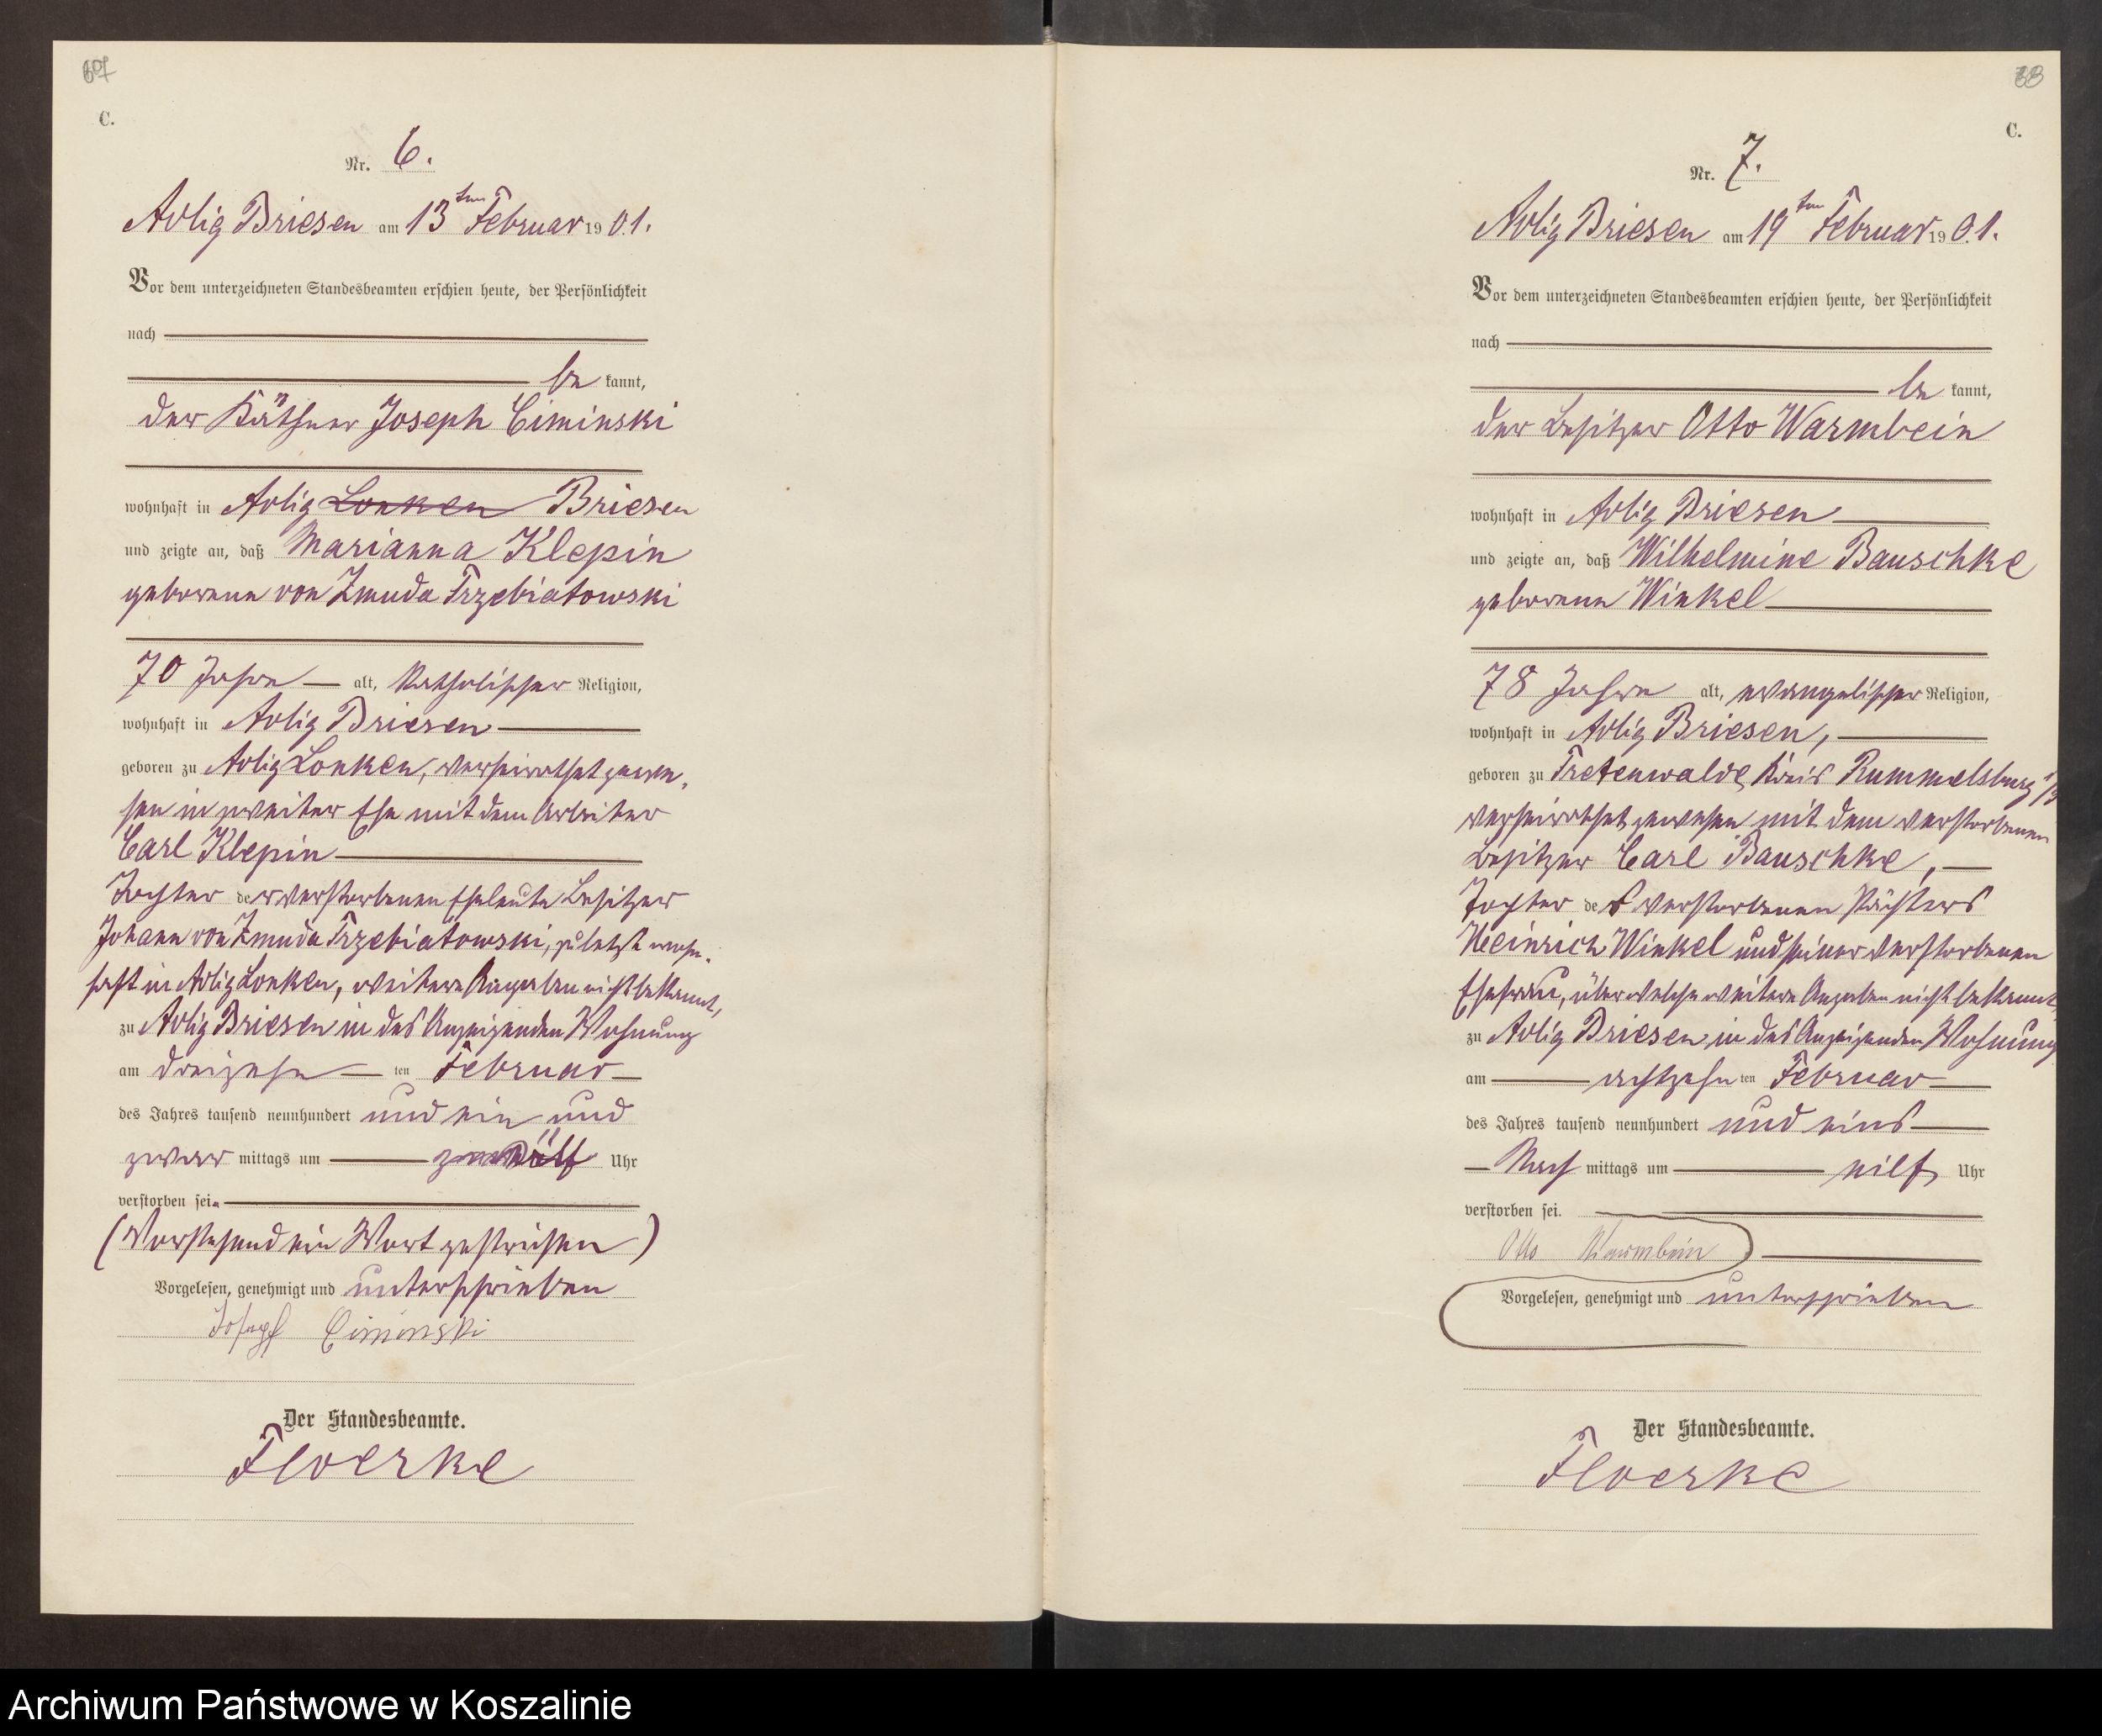 C.
Nr. 6.
Adlig Briesen am 13ten Februar 1901.
Vor dem unterzeichneten Standesbeamten erschien heute, der Persönlichkeit
nach
be kannt,
der Käthner Joseph Ciminski
wohnhaft in Adlig Lonken Briesen
und zeigte an, daß Marianna Klepin
geborene von Zmuda Trzebiatowski
70 Jahre alt, katholischer Religion,
wohnhaft in Adlig Briesen
geboren zu Adlig Lonken, verheirathet gewe-
sen in zweiter Ehe mit dem Arbeiter
Carl Klepin
Tochter der verstorbenen Eheleute Besitzer
Johann von Zmuda Trzebiatowski, zuletzt wohn-
haft in Adlig Lonken, weitere Angaben nicht bekannt,
zu Adlig Briesen in des Anzeigenden Wohnung
am dreizehn ten Februar
des Jahres tausend neunhundert und ein und
zwar mittags um zwölf Uhr
verstorben sei.
(Vorstehend ein Wort gestrichen)
Vorgelesen, genehmigt und unterschrieben
Joseph Ciminski
Der Standesbeamte.
Floerke
C.
Nr. 7.
Adlig Briesen am 19ten Februar 1901.
Vor dem unterzeichneten Standesbeamten erschien heute, der Persönlichkeit
nach
be kannt,
der Besitzer Otto Warmbein
wohnhaft in Adlig Briesen
und zeigte an, daß Wilhelmine Bauschke
geborene Winkel
78 Jahre alt, evangelischer Religion,
wohnhaft in Adlig Briesen,
geboren zu Tretenwalde, Kreis Rummelsburg
verheirathet gewesen mit dem verstorbenen
Besitzer Carl Bauschke,
Tochter des verstorbenen Pächters
Heinrich Winkel und seiner verstorbenen
Ehefrau, über welche weitere Angaben nicht bekannt,
zu Adlig Briesen in des Anzeigenden Wohnung
am achtzehn ten Februar
des Jahres tausend neunhundert und eins
Nach mittags um elf Uhr
verstorben sei.
Otto Warmbein
Vorgelesen, genehmigt und unterschrieben
Der Standesbeamte.
Floerke
Archiwum Państwowe w Koszalinie